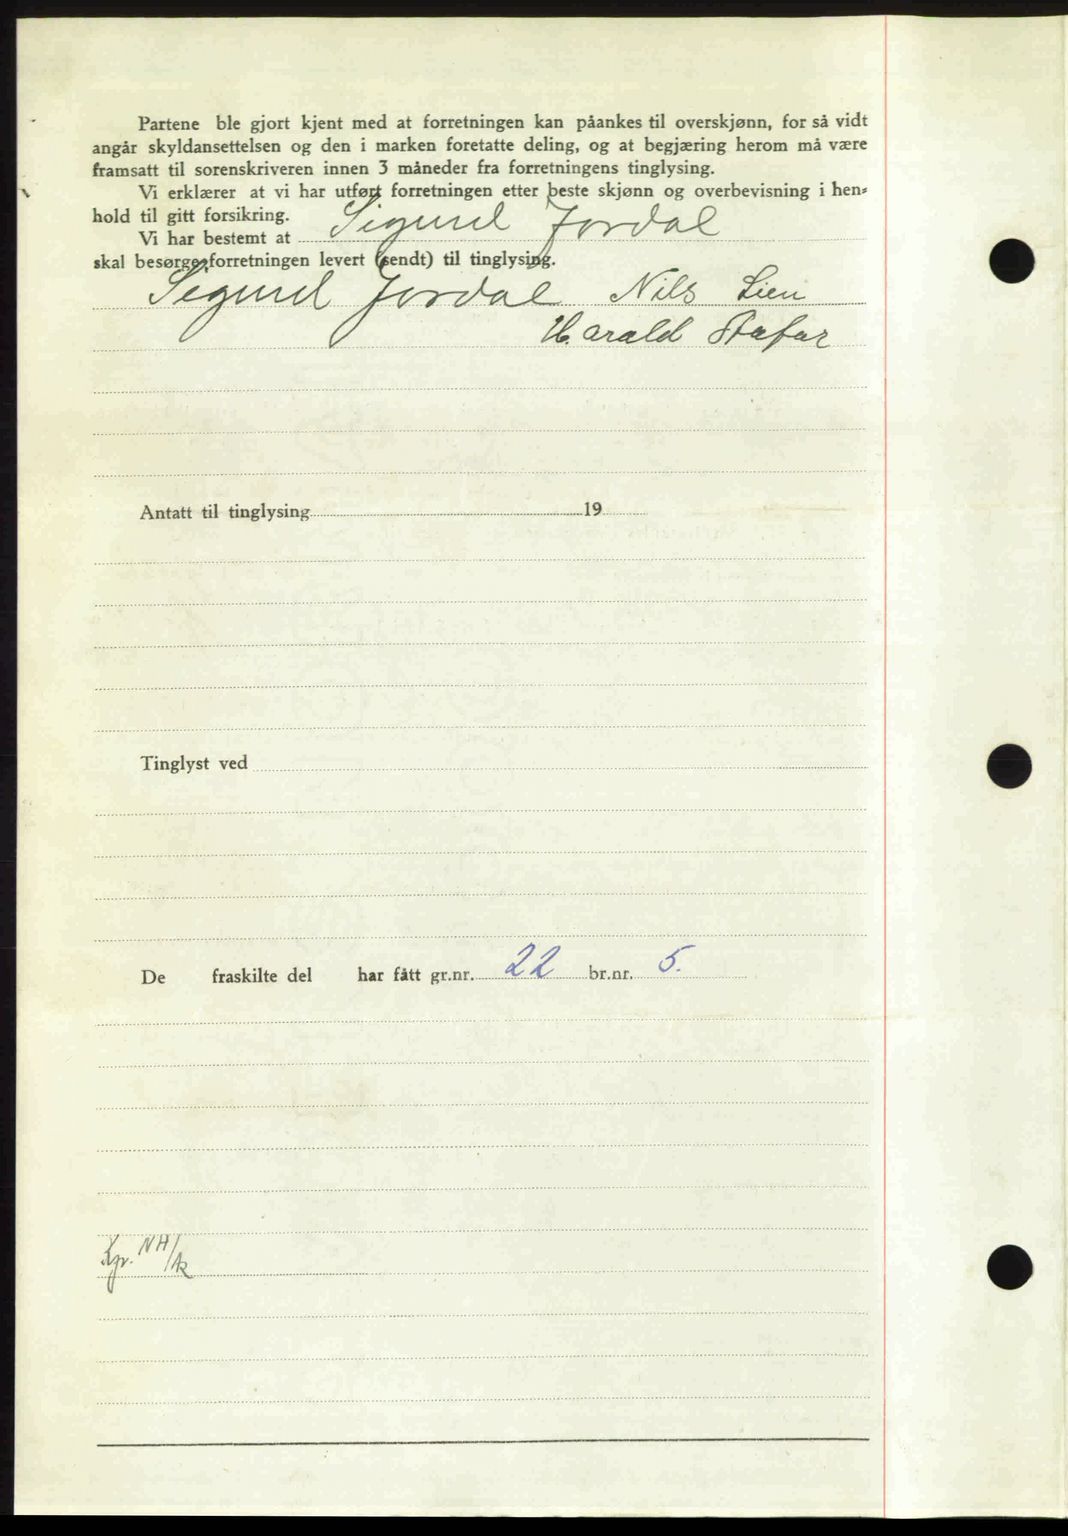 Partene ble gjort kjent med at forretningen kan påankes til overskjønn, for så vidt
angår skyldansettelsen og den i marken foretatte deling, og at begjæring herom må være
framsatt til sorenskriveren innen 3 måneder fra forretningens tinglysing.
Vi erklærer at vi har utført forretningen etter beste skjønn og overbevisning i hen-
hold til gitt forsikring.
Vi har bestemt at Sigurd Jordal
skal besørge forretningen levert (sendt) til tinglysing.
Sigurd Jordal Nils Lien
Harald
Antatt til tinglysing 19
Tinglyst ved
De fraskilte del har fått gr.nr. 22 br.nr. 5.
NH/k